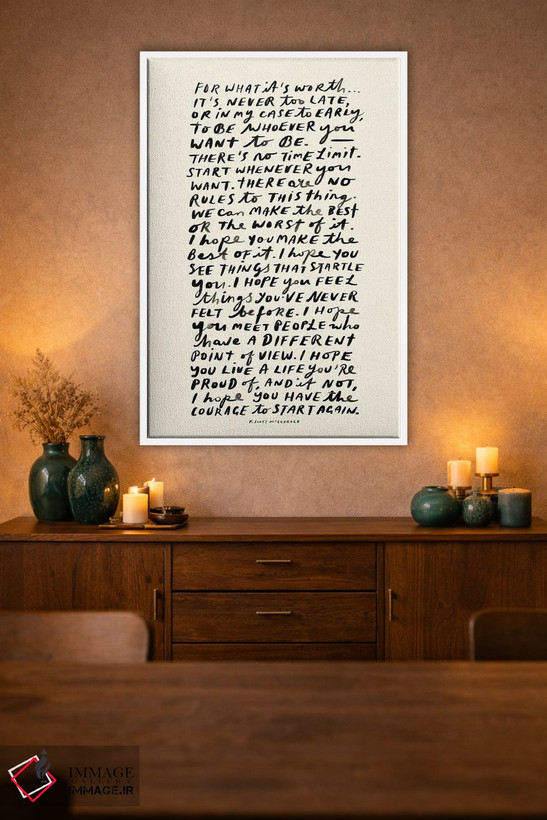 FOR WHAT iT'S WORTH...
IT'S NEVER too LATE,
OR iN MY CASE to EARLY,
TO BE WHOEVER you
WANT to BE. —
THERE'S no TIME Limit.
START WHENEVER you
WANT. THERE are NO
RULES to THIS thing.
WE can MAKE the BEST
OR THE WORST of it.
I hope YOU MAKE the
BesT OF iT. I hope YOU
SEE THINGS THAT STARTLE
you. I HOPE you FEEL
things YOU'VE NEVER
FELT before. I Hope
you MEET PEOPLE who
have A DIFFERENT
POINT of VIEW. I HOPE
YOU LIVE A LIFE YOU'RE
PROUD of, AND if NOT,
I hope YOU HAVE the
COURAGE to START AGAIN.
F. SCOTT FITZGERALD
IMMAGE
GALLERY
IMMAGE.IR